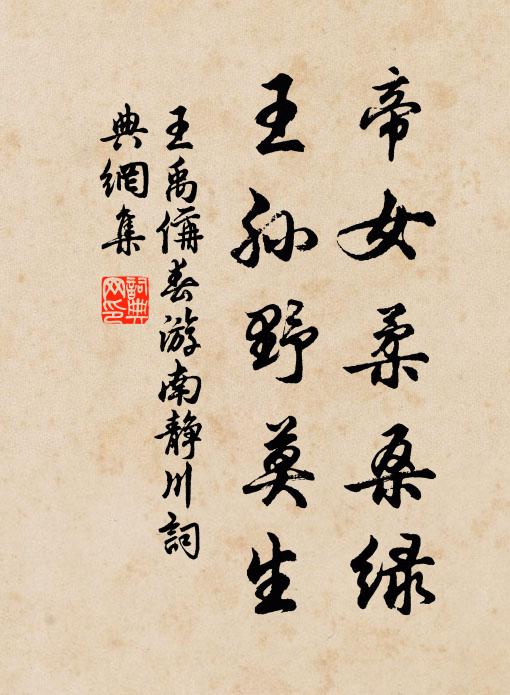 帝女柔桑緑
王孙野莫生
王禹偁春游南静川詞
典網集
詞典网印